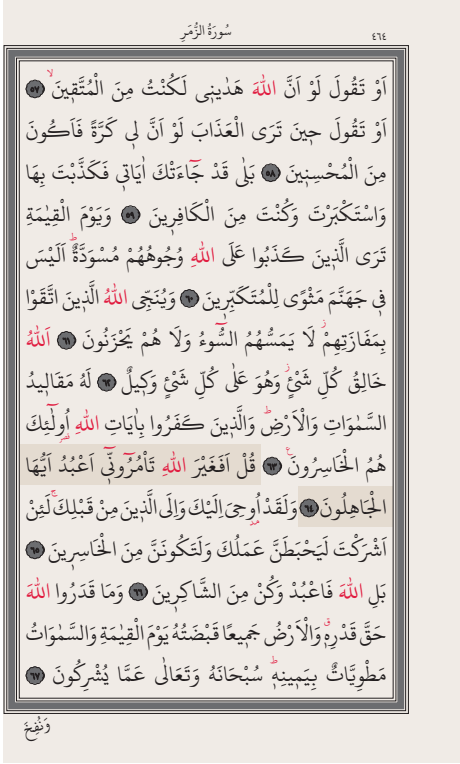 سُورَةُ الزُّمَرِ
٤٦٤
اَوْ تَقُولَ لَوْ اَنَّ اللّٰهَ هَدٰينٖى لَكُنْتُ مِنَ الْمُتَّقٖينَۙ ﴿٥٧﴾
اَوْ تَقُولَ حٖينَ تَرَى الْعَذَابَ لَوْ اَنَّ لٖى كَرَّةً فَاَكُونَ
مِنَ الْمُحْسِنٖينَ ﴿٥٨﴾ بَلٰى قَدْ جَٓاءَتْكَ اٰيَاتٖى فَكَذَّبْتَ بِهَا
وَاسْتَكْبَرْتَ وَكُنْتَ مِنَ الْكَافِرٖينَ ﴿٥٩﴾ وَيَوْمَ الْقِيٰمَةِ
تَرَى الَّذٖينَ كَذَبُوا عَلَى اللّٰهِ وُجُوهُهُمْ مُسْوَدَّةٌؕ اَلَيْسَ
فٖى جَهَنَّمَ مَثْوًى لِلْمُتَكَبِّرٖينَ ﴿٦٠﴾ وَيُنَجِّى اللّٰهُ الَّذٖينَ اتَّقَوْا
بِمَفَازَتِهِمْؗ لَا يَمَسُّهُمُ السُّٓوءُ وَلَا هُمْ يَحْزَنُونَ ﴿٦١﴾ اَللّٰهُ
خَالِقُ كُلِّ شَىْءٍؗ وَهُوَ عَلٰى كُلِّ شَىْءٍ وَكٖيلٌ ﴿٦٢﴾ لَهُ مَقَالٖيدُ
السَّمٰوَاتِ وَالْاَرْضِؕ وَالَّذٖينَ كَفَرُوا بِاٰيَاتِ اللّٰهِ اُو۬لٰٓئِكَ
هُمُ الْخَاسِرُونَࣖ ﴿٦٣﴾ قُلْ اَفَغَيْرَ اللّٰهِ تَأْمُرُٓونّٖٓى اَعْبُدُ اَيُّهَا
الْجَاهِلُونَ ﴿٦٤﴾ وَلَقَدْ اُو۫حِىَ اِلَيْكَ وَاِلَى الَّذٖينَ مِنْ قَبْلِكَۚ لَئِنْ
اَشْرَكْتَ لَيَحْبَطَنَّ عَمَلُكَ وَلَتَكُونَنَّ مِنَ الْخَاسِرٖينَ ﴿٦٥﴾
بَلِ اللّٰهَ فَاعْبُدْ وَكُنْ مِنَ الشَّاكِرٖينَ ﴿٦٦﴾ وَمَا قَدَرُوا اللّٰهَ
حَقَّ قَدْرِهٖࣗ وَالْاَرْضُ جَمٖيعًا قَبْضَتُهُ يَوْمَ الْقِيٰمَةِ وَالسَّمٰوَاتُ
مَطْوِيَّاتٌ بِيَمٖينِهٖؕ سُبْحَانَهُ وَتَعَالٰى عَمَّا يُشْرِكُونَ ﴿٦٧﴾
وَنُفِخَ